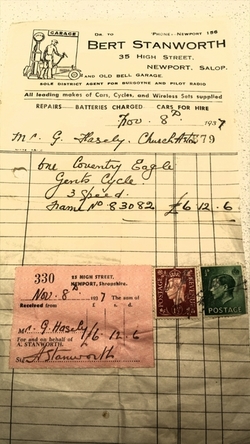 GARAGE
Dr. to
'Phone:-Newport 156
BERT STANWORTH
35 HIGH STREET,
NEWPORT, SALOP.
AND OLD BELL GARAGE.
SOLE DISTRICT AGENT FOR BUCCDYNE AND PILOT RADIO
All leading makes of Cars, Cycles, and Wireless Sets supplied
REPAIRS BATTERIES CHARGED CARS FOR HIRE
Nov. 8th 1937
Mr. G. Hasely. Church 379
One Coventry Eagle
Gents Cycle.
3 Speed.
Frame No 83082 £6.12.6
330
35 HIGH STREET,
NEWPORT, Shropshire.
Nov. 8th 1937 The sum of
Received from £ s. d.
Mr. G. Hasely £6.12.6
For and on behalf of
A. STANWORTH.
A Stanworth
POSTAGE
POSTAGE